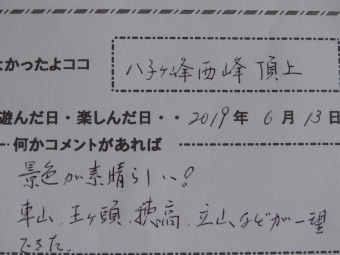 よかったよココ
八子ヶ峰西峰頂上
遊んだ日・楽しんだ日・・2019年 6月 13日
何かコメントがあれば
景色が素晴らしい!
車山、王ヶ頭、穂高、立山などが一望
できた。